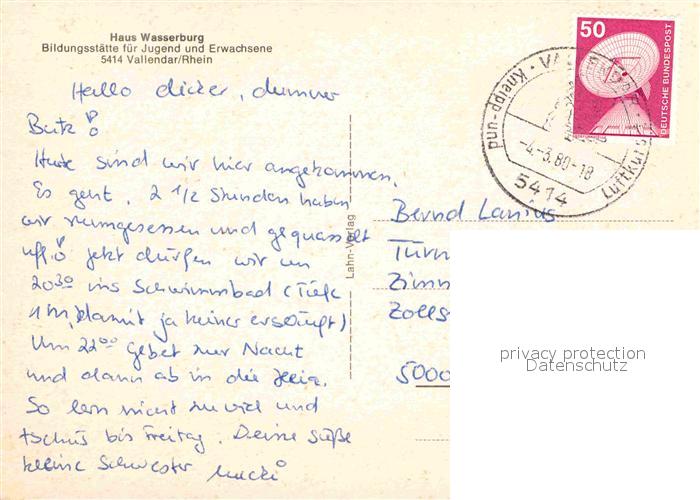 Haus Wasserburg
Bildungsstätte für Jugend und Erwachsene
5414 Vallendar/Rhein
Hallo dicker, dummer
Heute sind wir hier angekommen.
Es geht. 2 1/2 Stunden haben
wir rumgesessen und gequasselt
uff! jetzt dürfen wir um
20³⁰ ins Schwimmbad (Tiefe
1m, damit ja keiner ersäuft)
Um 22⁰⁰ Gebet zur Nacht
und dann ab in die Heia.
So lern nicht zu viel und
tschüs bis Freitag. Deine süße
kleine Schwester
50
DEUTSCHE BUNDESPOST
Kneipp-und
Luftkur
-4.-3.80-18
5414
Lahn-Verlag
Bernd Lanius
Turn
Zimm
Zolls
5000
privacy protection
Datenschutz